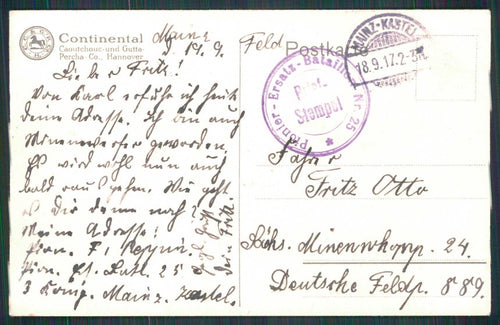 Continental
Caoutchouc- und Gutta-
Percha-Co., Hannover
Mainz
17. 9.
Lieber Fritz!
Von Karl erfuhr ich heute
deine Adresse. Ich bin auch
Minenwerfer geworden.
Es wird wohl nun auch
bald raus gehen. Wie geht
es Dir denn noch?
Meine Adresse:
Pion. F.
Pion. Ers. Batl. 25
3 Komp. Mainz, Kastel.
Fritz
Feld Postkarte
MAINZ-KASTEL
18.9.17.2-3N.
Pionier-Ersatz-Bataillon Nr. 25
Post-
Stempel
Fahrer
Fritz Otto
Sächs. Minenwkopp. 24.
Deutsche Feldp. 889.